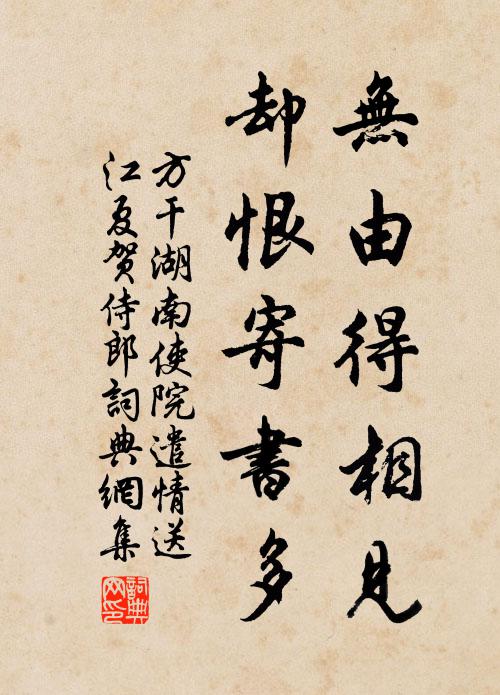 無由得相見
却恨寄書多
方干湖南使院遣情送
江夏贺侍郎詞典網集
詞典網印